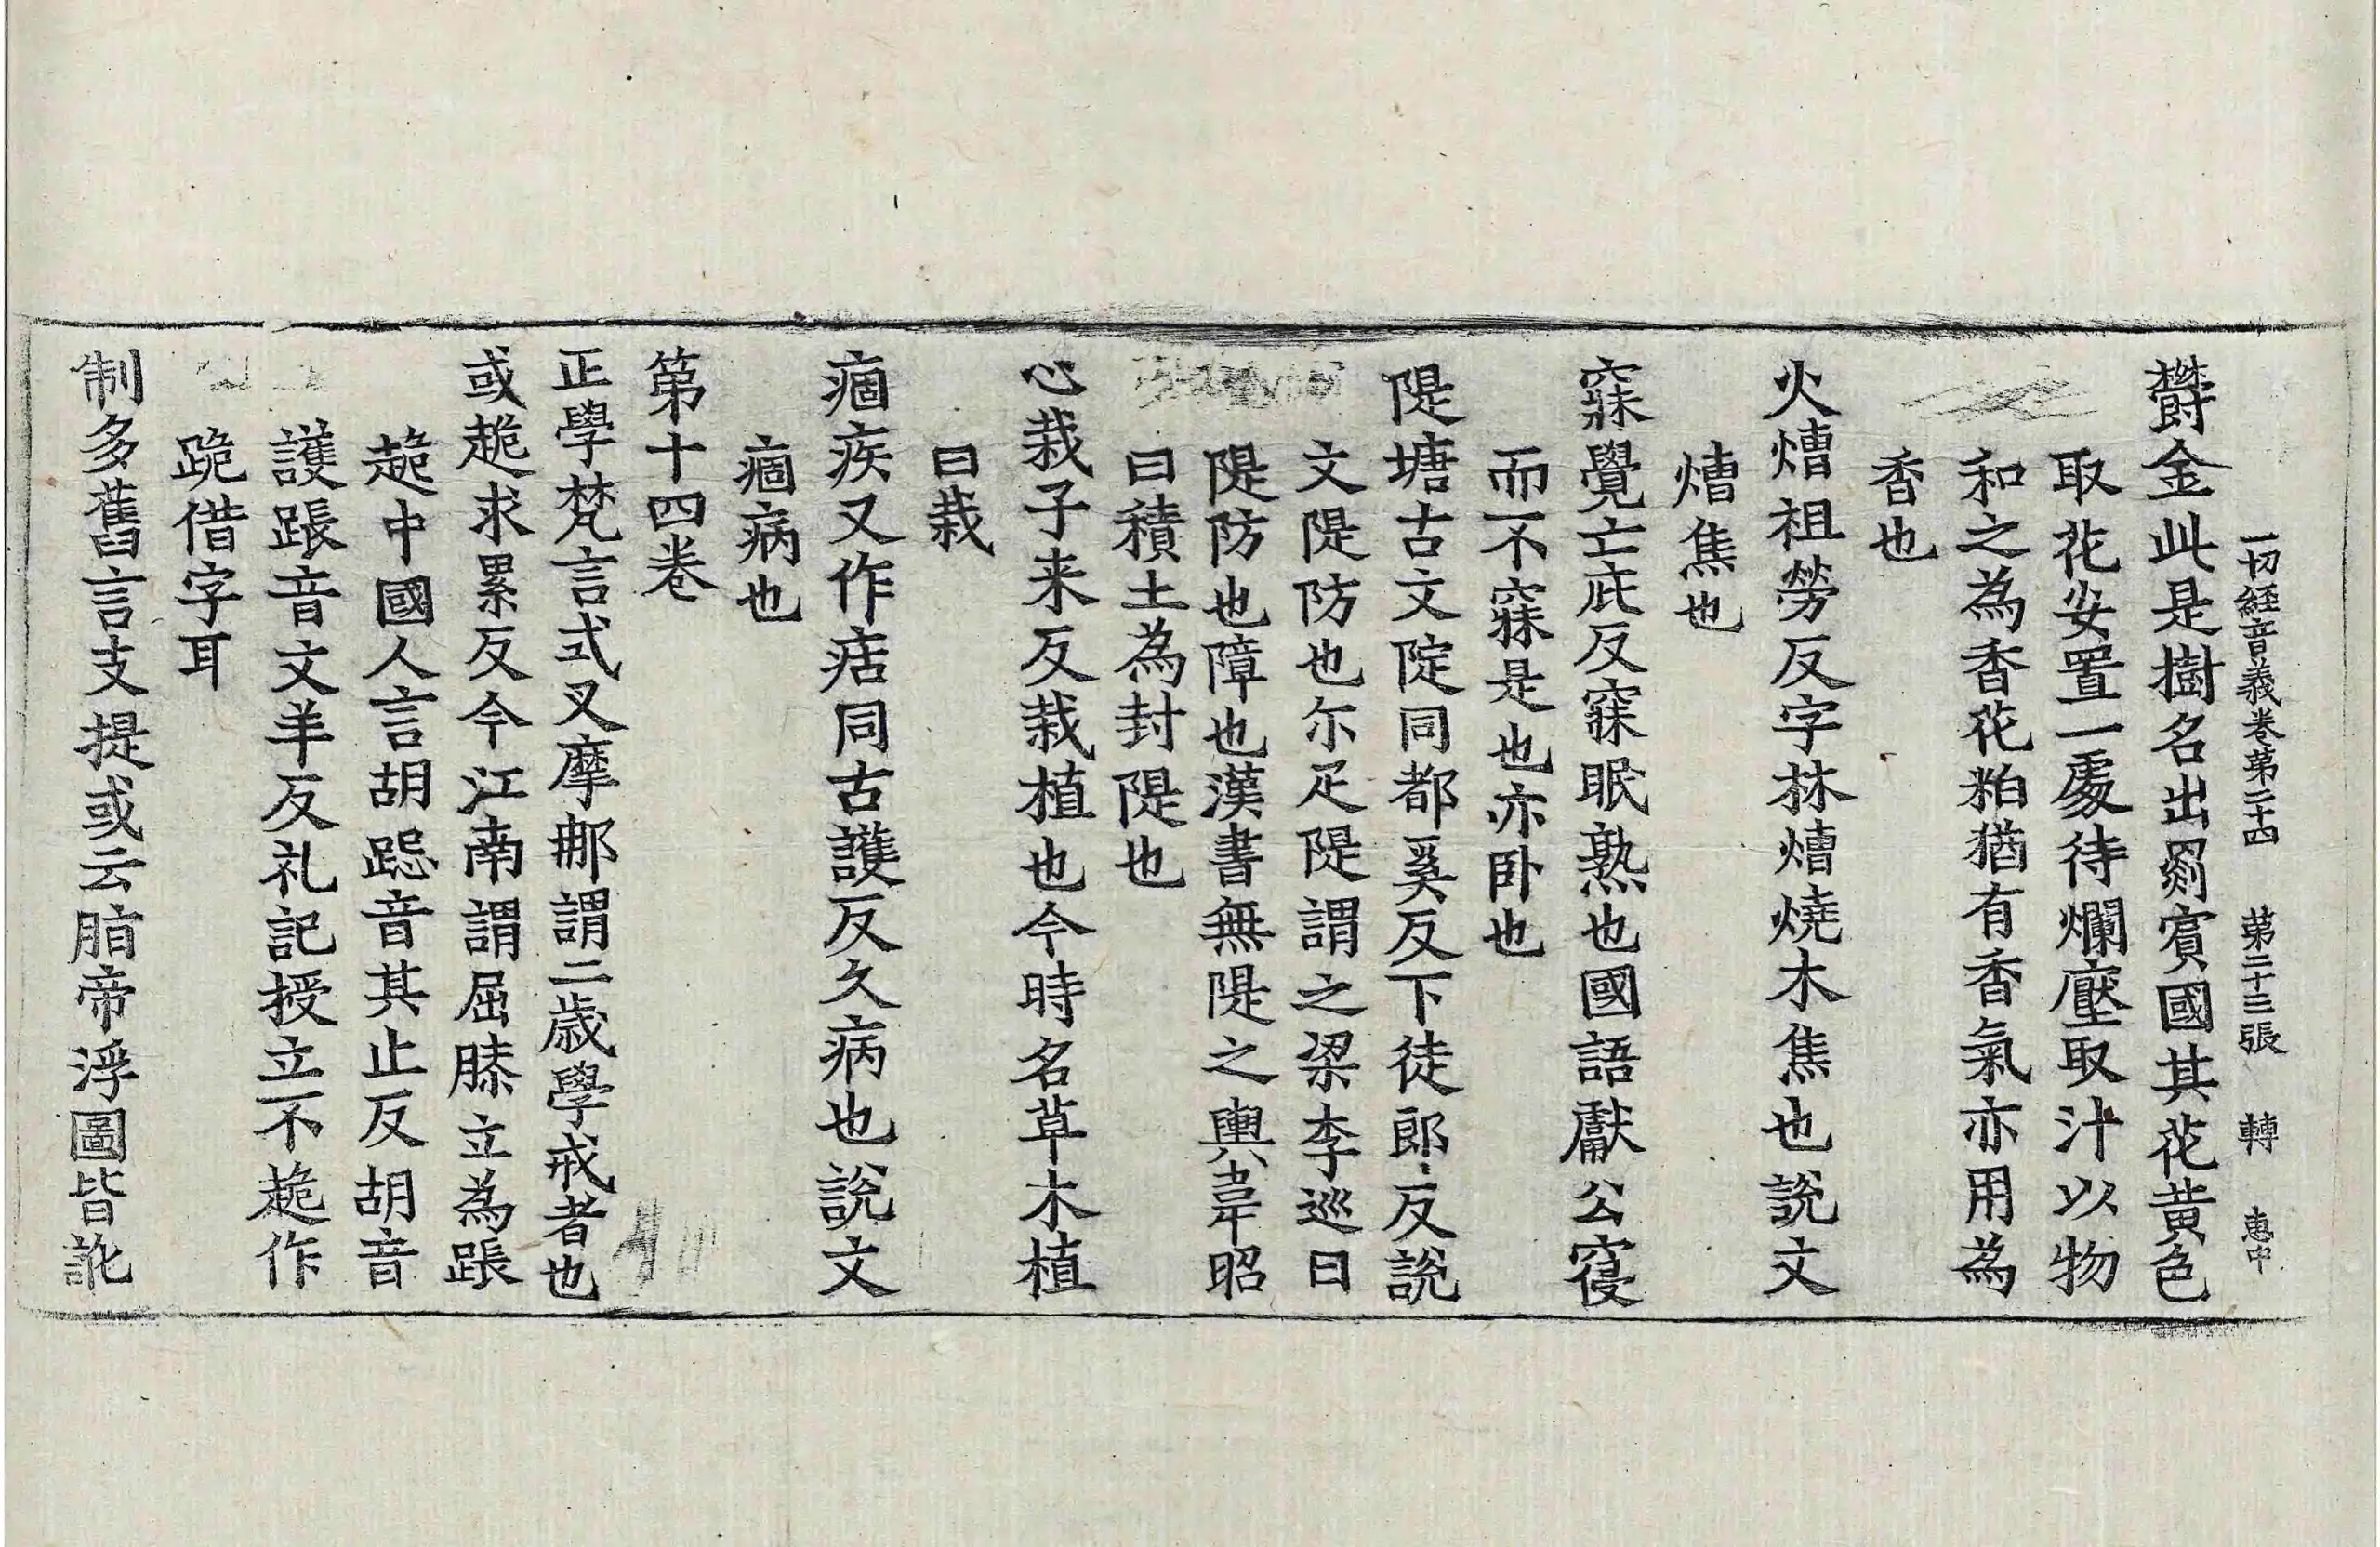 一切經音義卷第二十四 第二十三張 轉 惠中
欝金此是樹名出罽賓國其花黃色
取花安置一處待爛壓取汁以物
和之為香花粕猶有香氣亦用為
香也
火熸祖勞反字林熸燒木焦也說文
熸焦也
寐覺亡庇反寐眠熟也國語獻公寑
而不寐是也亦卧也
隄塘古文陡同都奚反下徒郎反說
文隄防也尓疋隄謂之梁李巡曰
隄防也障也漢書無隄之輿韋昭
曰積土為封隄也
心栽子来反栽植也今時名草木植
曰栽
痼疾又作㽽同古護反久病也說文
痼病也
第十四卷
正學梵言式叉摩那謂二歲學戒者也
或䞈求累反今江南謂屈膝立為䠆
䞈中國人言胡跽音其止反胡音
護䠆音文羊反礼記授立不䞈作
跪借字耳
制多舊言支提或云脂帝浮圖皆訛